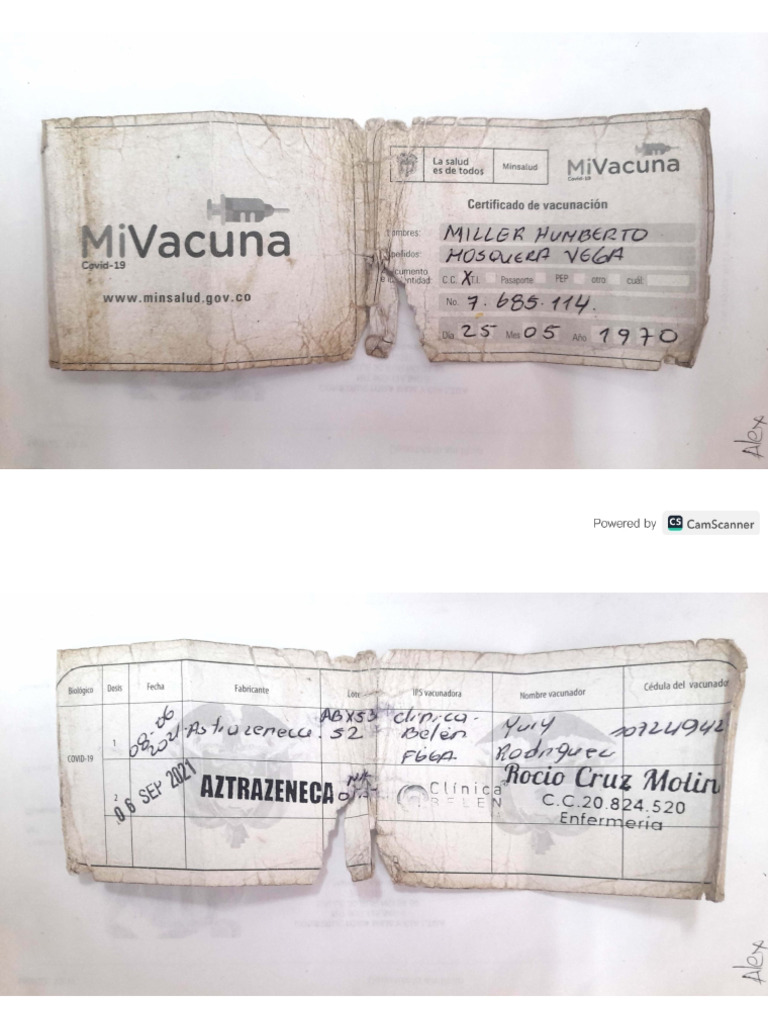 MiVacuna
Covid-19
www.minsalud.gov.co
La salud
es de todos
Minsalud
MiVacuna
Covid-19
Certificado de vacunación
ombres: MILLER HUMBERTO
pellidos: MOSQUERA VEGA
cumento
e identidad: C.C. X T.I. Pasaporte PEP otro cuál:
No. 7.685.114.
Día 25 Mes 05 Año 1970
Alex
Powered by CS CamScanner
Biológico Dosis Fecha Fabricante Lote IPS vacunadora Nombre vacunador Cédula del vacunado
COVID-19
1 08.06 2021 Astrazeneca. ABX53 52 Clinica. Belén Yury Rodriguez
2 06 SEP 2021 AZTRAZENECA Clínica BELEN Rocio Cruz Molin
C.C.20.824.520
Enfermeria
Alex